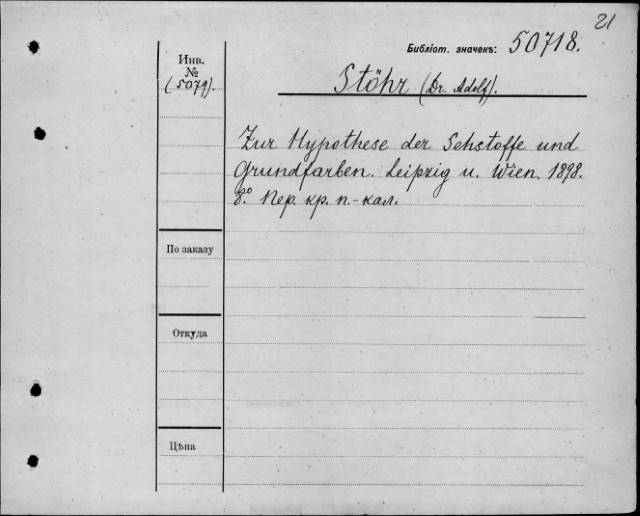 21
Библіот. значекъ: 50718.
Инв.
№
(5079).
Stöhr (Dr. Adolf).
Zur Hypothese der Sehstoffe und
Grundfarben. Leipzig u. Wien. 1898.
8.° Пер. кр. п.-кал.
По заказу
Откуда
Цѣна